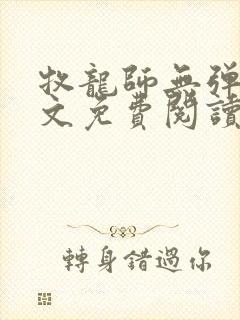 牧龍師無彈
文免費閱讀
轉身錯過你